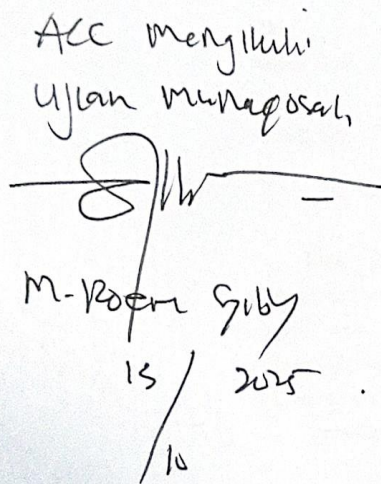 ACC mengikuti
Ujian munaqosah
M. Roem Siby
15/10 2025